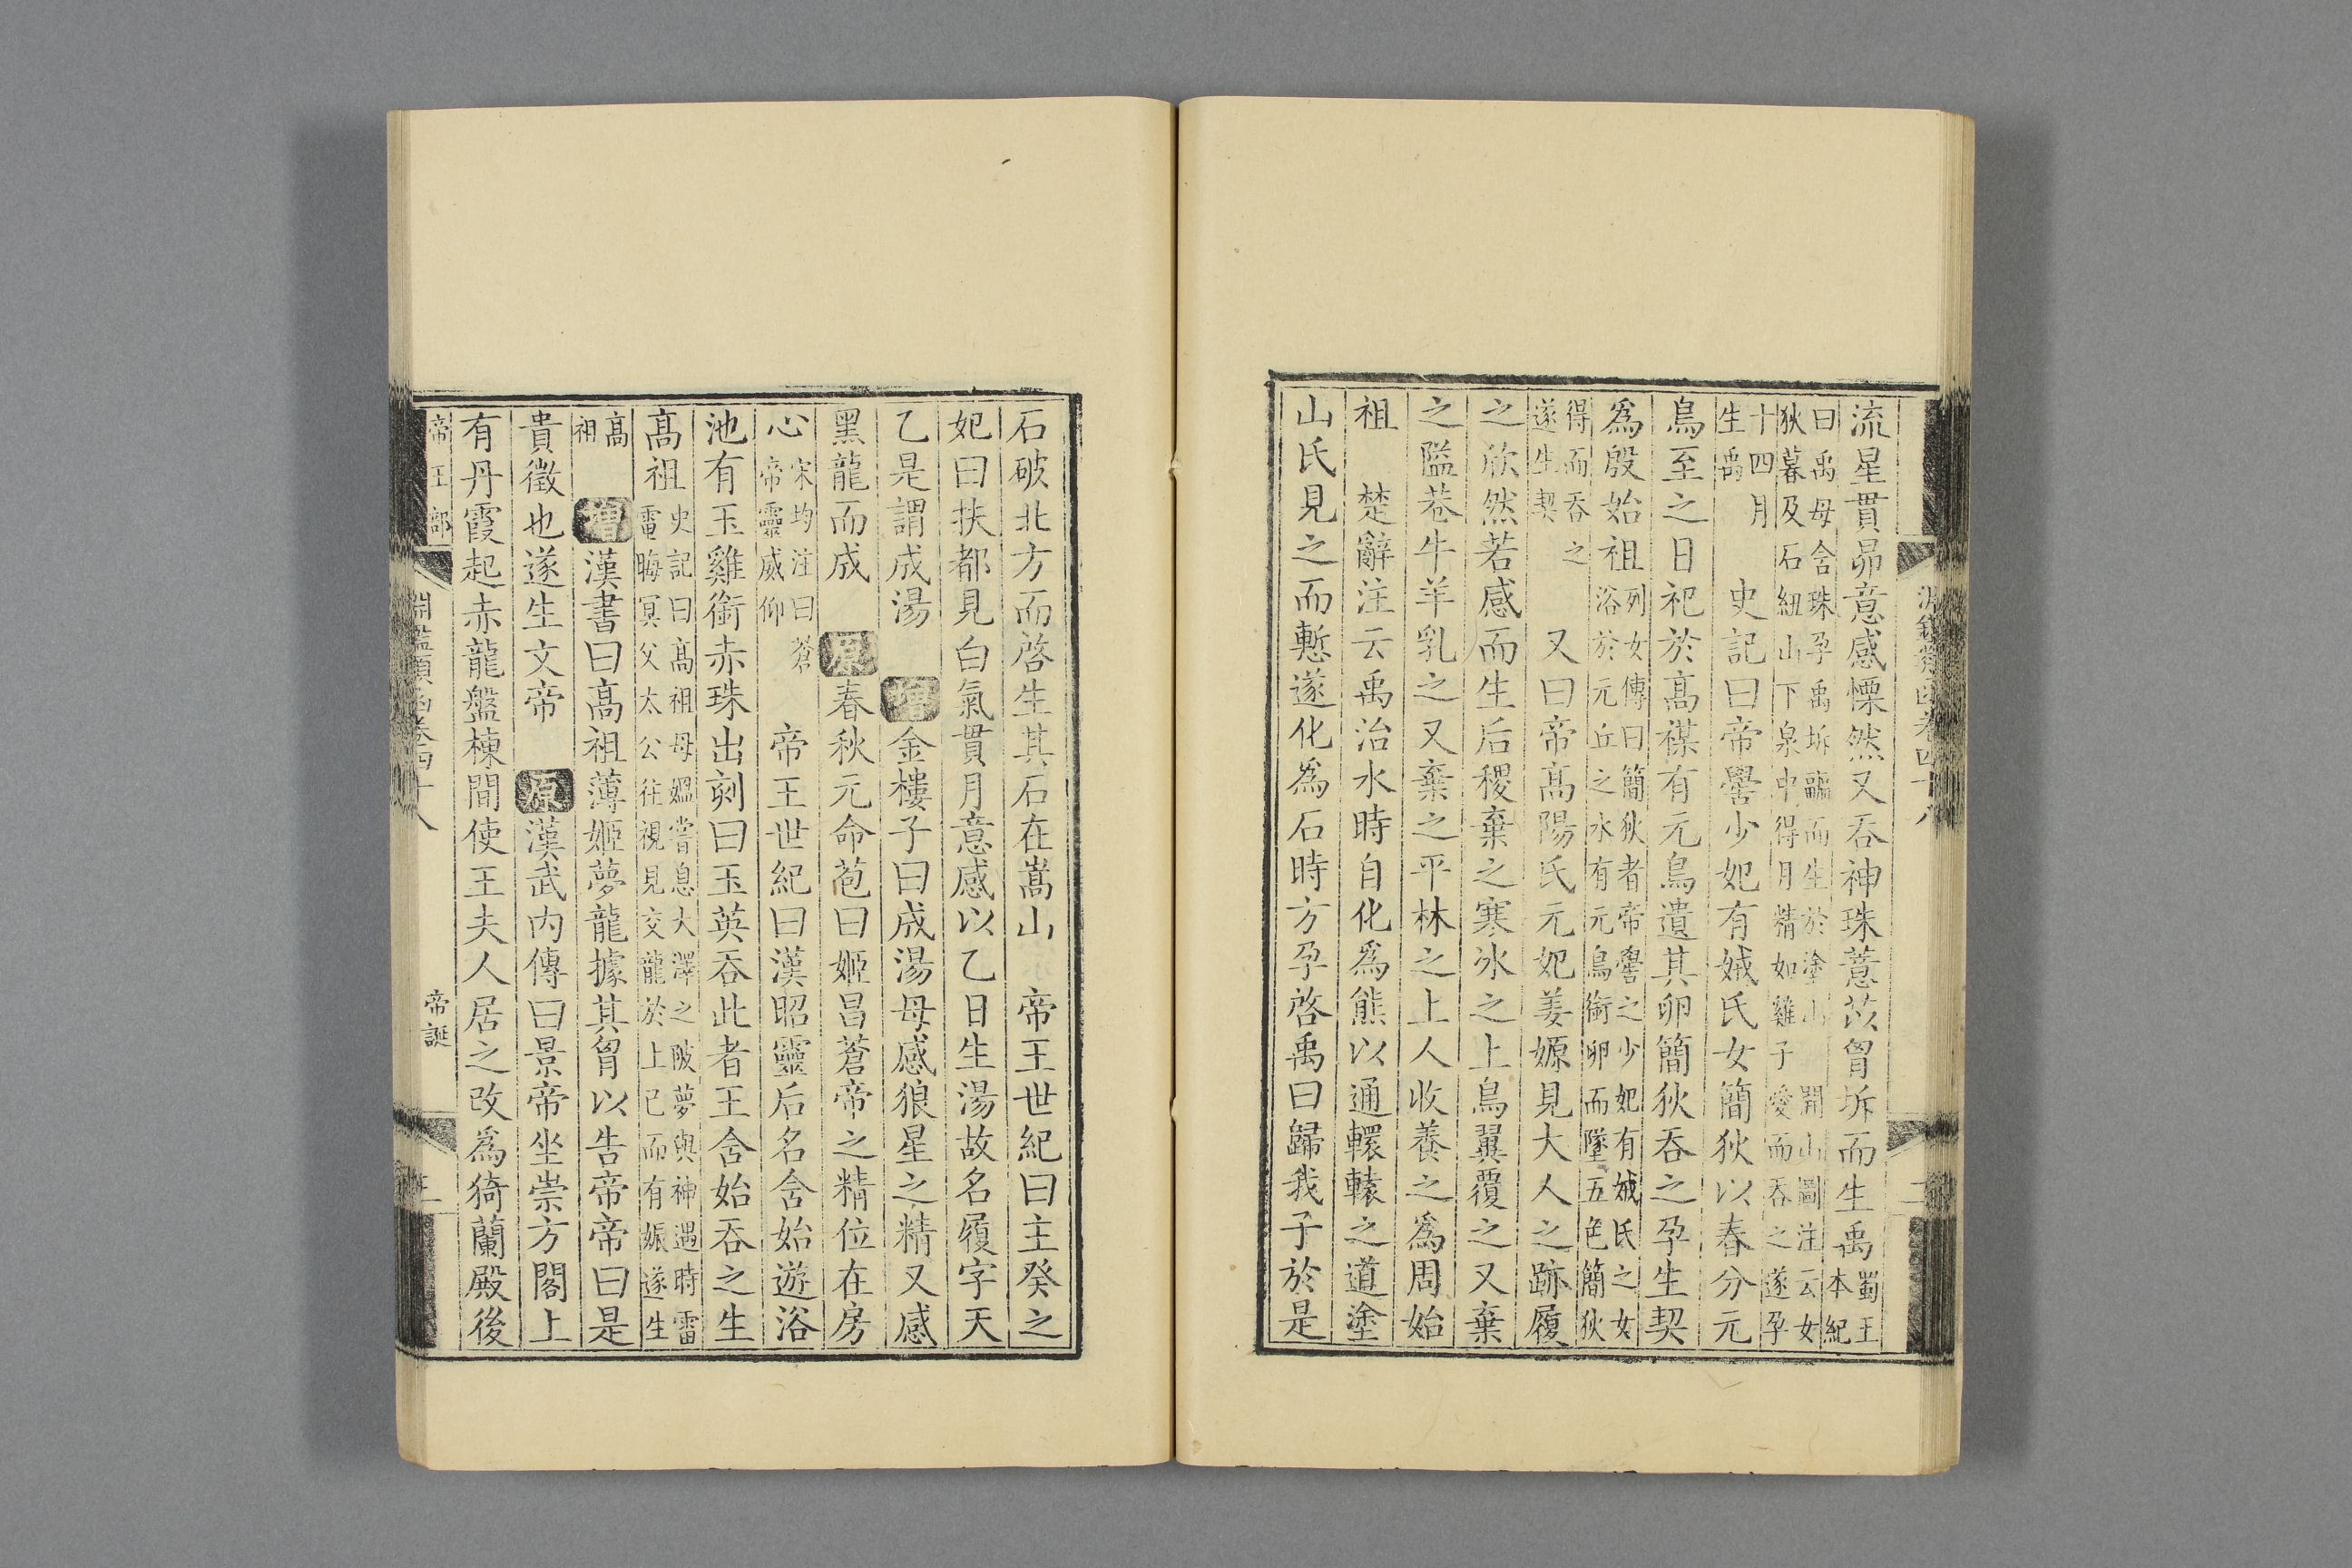 流星貫昴意感慄然又吞神珠薏苡胷坼而生禹蜀王本紀
曰禹母含珠孕禹坼𨽁而生於塗山開山圖注云女
狄暮及石紐山下泉中得月精如雞子愛而吞之遂孕
十四月生禹 史記曰帝嚳少妃有娀氏女簡狄以春分元
鳥至之日祀於高禖有元鳥遺其卵簡狄吞之孕生契
為殷始祖列女傳曰簡狄者帝嚳之少妃有娀氏之女
浴於元丘之水有元鳥銜卵而墜五色簡狄
得而吞之遂生契 又曰帝高陽氏元妃姜嫄見大人之跡履
之欣然若感而生后稷棄之寒冰之上鳥翼覆之又棄
之隘巷牛羊乳之又棄之平林之上人收養之為周始
祖 楚辭注云禹治水時自化為熊以通轘轅之道塗
山氏見之而慙遂化為石時方孕啓禹曰歸我子於是
淵鑑類函卷四十八 二
石破北方而啓生其石在嵩山 帝王世紀曰主癸之
妃曰扶都見白氣貫月意感以乙日生湯故名履字天
乙是謂成湯 增金樓子曰成湯母感狼星之精又感
黑龍而成 原春秋元命苞曰姬昌蒼帝之精位在房
心宋均注曰蒼帝靈威仰 帝王世紀曰漢昭靈后名含始遊浴
池有玉雞銜赤珠出刻曰玉英吞此者王含始吞之生
高祖史記曰高祖母媼嘗息大澤之陂夢與神遇時雷
電晦冥父太公往視見交龍於上已而有娠遂生
高祖 增漢書曰高祖薄姬夢龍據其胷以告帝帝曰是
貴徵也遂生文帝 原漢武內傳曰景帝坐崇方閣上
有丹霞起赤龍盤棟間使王夫人居之改為猗蘭殿後
帝王部 淵鑑類函卷四十八 帝誕